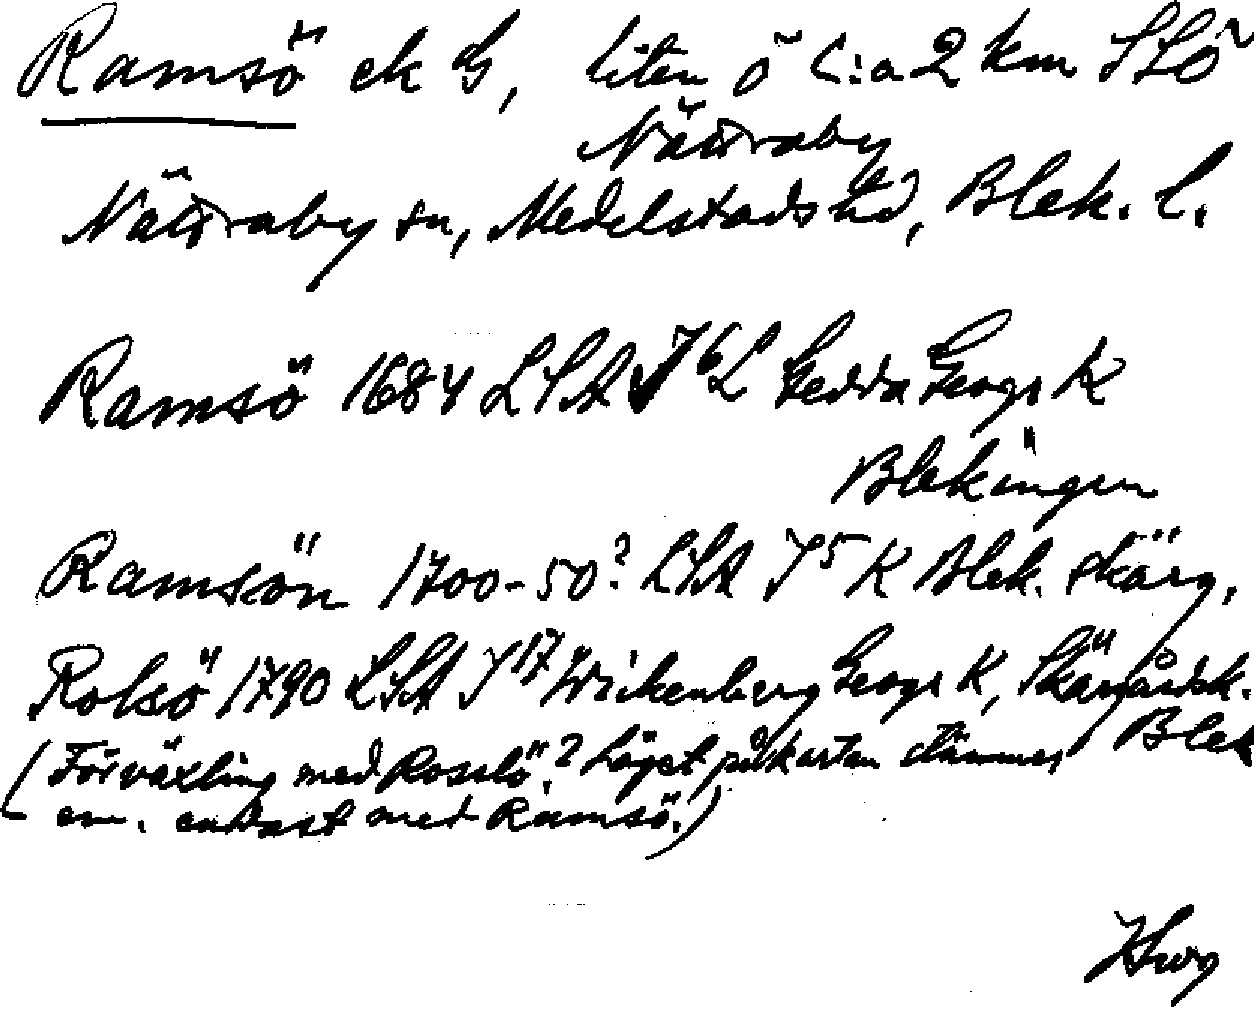 Ramsö ek G, liten ö c:a 2 km SSÖ
Nättraby
Nättraby sn, Medelstads hd, Blek. l.
Ramsö 1684 LSA J⁶L Gedda Geogr K
Blekingen
Ramsön 1700-50? LSA J⁵ K Blek. skärg.
Rolsö 1790 LSA J¹⁷ Wickenberg Geogr K, Skärgårdsk.
Blek
(Förväxling med Rosslö? Läget på kartan stämmer
em. endast med Ramsö.)